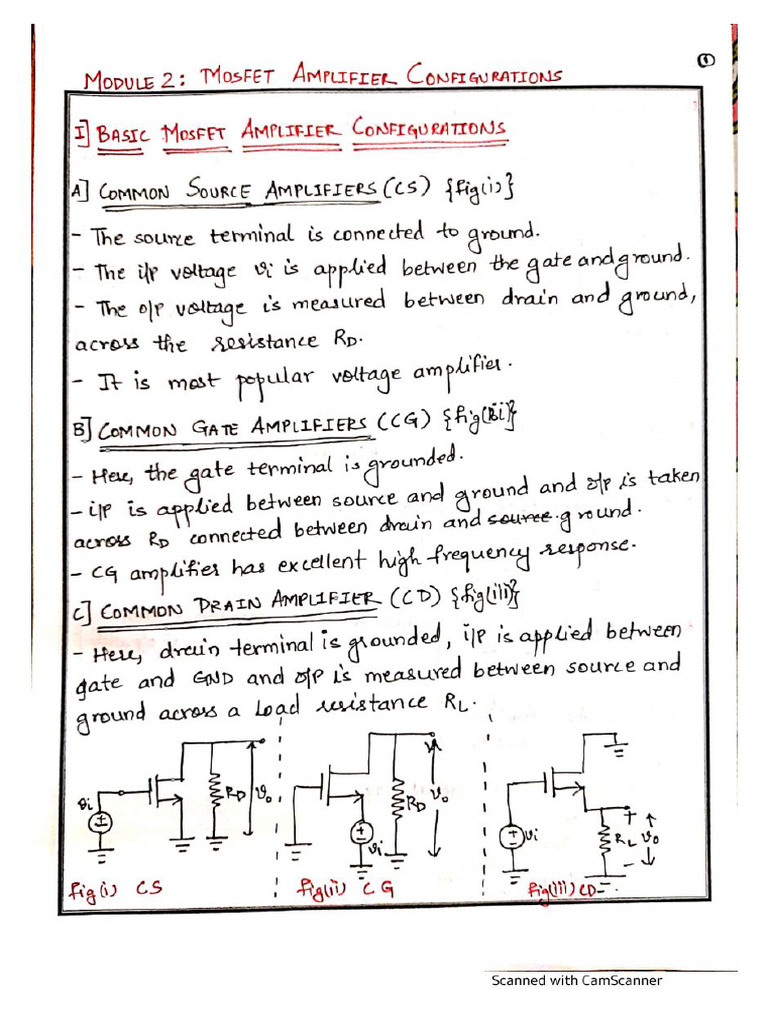 ①
MODULE 2: MOSFET AMPLIFIER CONFIGURATIONS
I] BASIC MOSFET AMPLIFIER CONFIGURATIONS
A] COMMON SOURCE AMPLIFIERS (CS) {fig(i)}
- The source terminal is connected to ground.
- The i/p voltage vi is applied between the gate and ground.
- The o/p voltage is measured between drain and ground,
across the resistance RD.
- It is most popular voltage amplifier.
B] COMMON GATE AMPLIFIERS (CG) {fig(ii)}
- Here, the gate terminal is grounded.
- i/p is applied between source and ground and o/p is taken
across RD connected between drain and source ground.
- CG amplifier has excellent high frequency response.
C] COMMON DRAIN AMPLIFIER (CD) {fig(iii)}
- Here, drain terminal is grounded, i/p is applied between
gate and GND and o/p is measured between source and
ground across a load resistance RL.
vi RD vo
RD vo vi
vi + RL vo -
fig(i) CS
fig(ii) CG
fig(iii) CD
Scanned with CamScanner